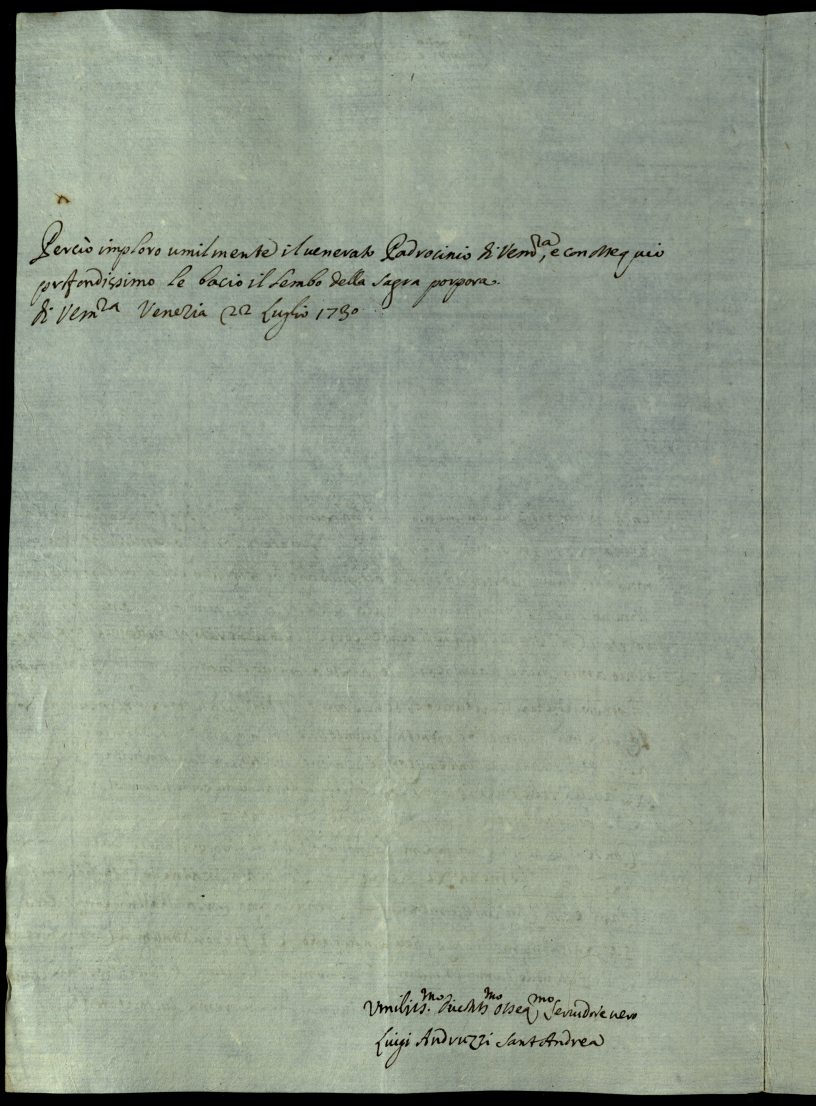 Perciò imploro umilmente il venerato Padrocinio di Vem^za, e con ossequio
profondissimo le bacio il lembo della sagra porpora.
di Vem^za Venezia 22 Luglio 1730
Umiliss.^mo Osseq^mo Servidore vero
Luigi Andruzzi Sant Andrea